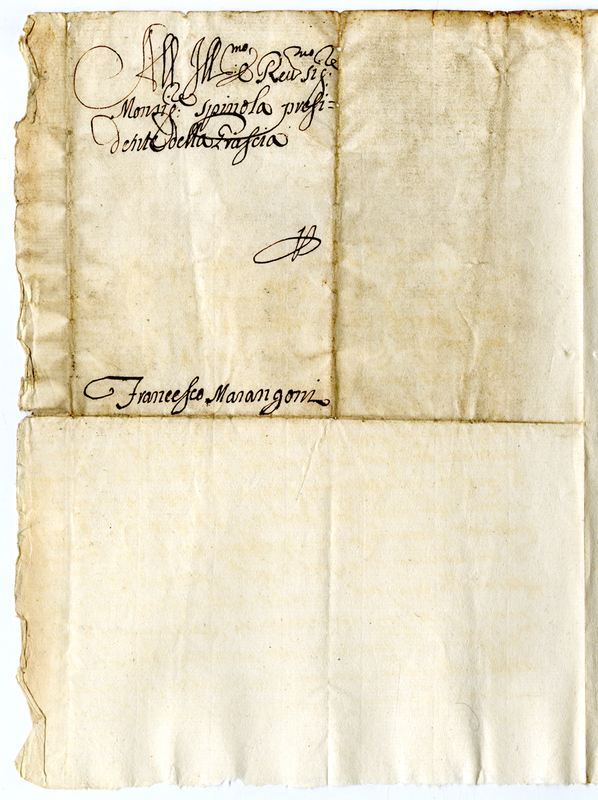 All Ill.mo e Reu.mo Sig.re
Monsig.re Spinola presi=
dente della Grascia
Francesco Marangoni